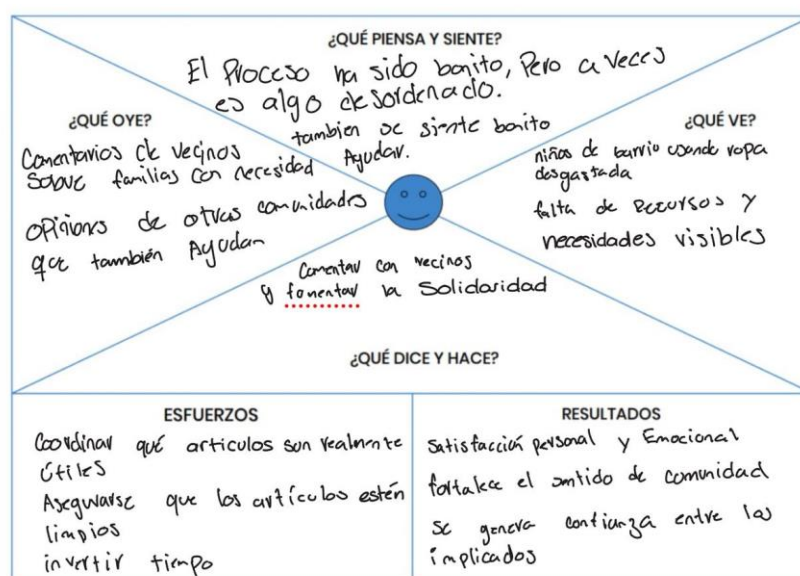 ¿QUÉ PIENSA Y SIENTE?
El Proceso ha sido bonito, Pero a veces
es algo desordenado.
tambien se siente bonito
Ayudar.
¿QUÉ OYE?
Comentarios de vecinos
Sobre familias con necesidad
opiniones de otras comunidades
que también Ayudan
¿QUÉ VE?
niños de barrio usando ropa
desgastada
falta de recursos y
necesidades visibles
Comentar con vecinos
y fomentar la Solidaridad
¿QUÉ DICE Y HACE?
ESFUERZOS
Coordinar qué articulos son realmente
útiles
Asegurarse que los artículos estén
limpios
invertir tiempo
RESULTADOS
Satisfacción personal y Emocional
fortalece el sentido de comunidad
se genera confianza entre los
implicados